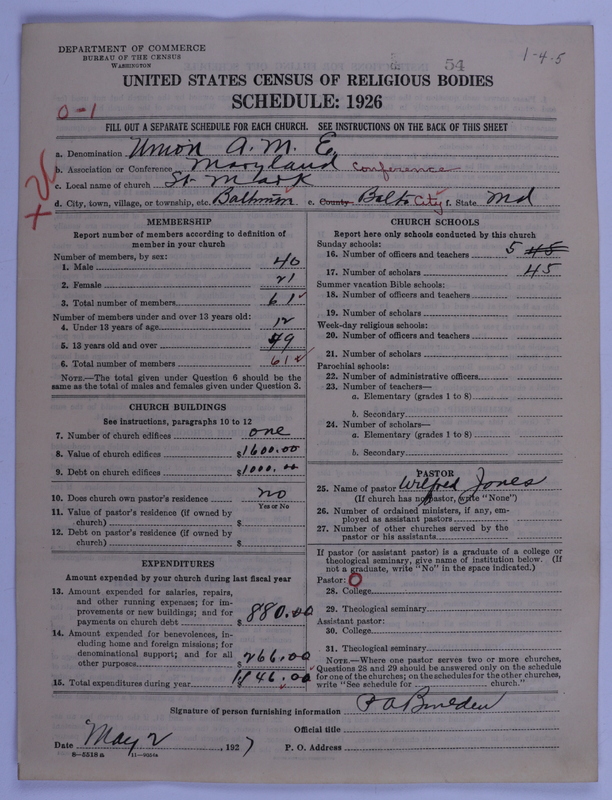 DEPARTMENT OF COMMERCE
BUREAU OF THE CENSUS
WASHINGTON
54
1-4-5
UNITED STATES CENSUS OF RELIGIOUS BODIES
SCHEDULE: 1926
0-1
FILL OUT A SEPARATE SCHEDULE FOR EACH CHURCH. SEE INSTRUCTIONS ON THE BACK OF THIS SHEET
a. Denomination Union A. M. E.
b. Association or Conference Maryland Conference
c. Local name of church St. Mark
d. City, town, village, or township, etc. Baltimore e. County Balto City f. State Md
MEMBERSHIP
Report number of members according to definition of
member in your church
Number of members, by sex:
1. Male 40
2. Female 21
3. Total number of members 61
Number of members under and over 13 years old:
4. Under 13 years of age 12
5. 13 years old and over 49
6. Total number of members 61
NOTE.—The total given under Question 6 should be the
same as the total of males and females given under Question 3.
CHURCH BUILDINGS
See instructions, paragraphs 10 to 12
7. Number of church edifices one
8. Value of church edifices $1600.00
9. Debt on church edifices $1000.00
10. Does church own pastor's residence no
Yes or No
11. Value of pastor's residence (if owned by
church) $
12. Debt on pastor's residence (if owned by
church) $
EXPENDITURES
Amount expended by your church during last fiscal year
13. Amount expended for salaries, repairs,
and other running expenses; for im-
provements or new buildings; and for
payments on church debt $880.00
14. Amount expended for benevolences, in-
cluding home and foreign missions; for
denominational support; and for all
other purposes $266.00
15. Total expenditures during year 1,146.00
CHURCH SCHOOLS
Report here only schools conducted by this church
Sunday schools:
16. Number of officers and teachers 5 45
17. Number of scholars 45
Summer vacation Bible schools:
18. Number of officers and teachers
19. Number of scholars
Week-day religious schools:
20. Number of officers and teachers
21. Number of scholars
Parochial schools:
22. Number of administrative officers
23. Number of teachers—
a. Elementary (grades 1 to 8)
b. Secondary
24. Number of scholars—
a. Elementary (grades 1 to 8)
b. Secondary
PASTOR
25. Name of pastor Wilfred Jones
(If church has no pastor, write "None")
26. Number of ordained ministers, if any, em-
ployed as assistant pastors
27. Number of other churches served by the
pastor or his assistants
If pastor (or assistant pastor) is a graduate of a college or
theological seminary, give name of institution below. (If
not a graduate, write "No" in the space indicated.)
Pastor: 0
28. College
29. Theological seminary
Assistant pastor:
30. College
31. Theological seminary
NOTE.—Where one pastor serves two or more churches,
Questions 28 and 29 should be answered only on the schedule
for one of the churches; on the schedules for the other churches,
write "See schedule for church."
Signature of person furnishing information
Official title
Date May 2, 1927 P. O. Address
8—5518a 11—9034a